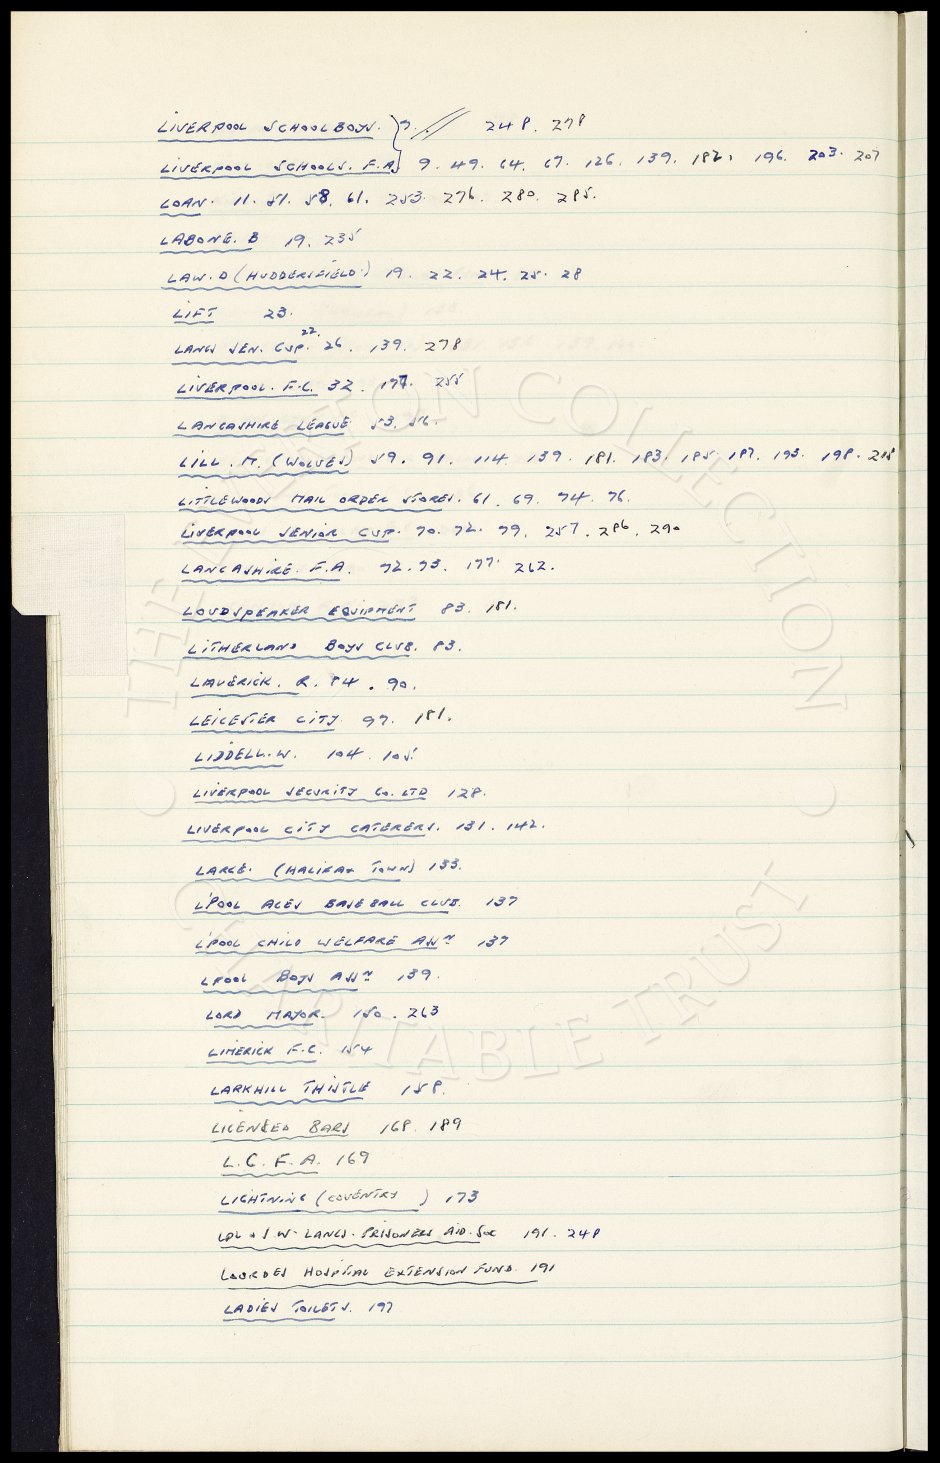 LIVERPOOL SCHOOLBOYS. } 7. // 248. 278
LIVERPOOL SCHOOLS. F.A. 9. 49. 64. 67. 126. 139. 182. 196. 203. 207
LOAN. 11. 51. 58. 61. 253. 276. 280. 285.
LABONE. B 19. 235
LAW. D (HUDDERSFIELD.) 19. 22. 24. 25. 28
LIFT 23.
LANCS SEN. CUP. 22. 26. 139. 278
LIVERPOOL. F.C. 32. 177. 255
LANCASHIRE LEAGUE 53. 56.
LILL. M. (WOLVES) 59. 91. 114. 139. 181. 183. 185. 187. 193. 198. 218
LITTLEWOODS MAIL ORDER STORES. 61. 69. 74. 76.
LIVERPOOL SENIOR CUP. 70. 72. 79. 257. 286. 290
LANCASHIRE. F.A. 72. 73. 177. 262.
LOUDSPEAKER EQUIPMENT 83. 181.
LITHERLAND BOYS CLUB. 83.
LAVERICK. R. 84. 90.
LEICESTER CITY 97. 181.
LIDDELL. W. 104. 105.
LIVERPOOL SECURITY Co. LTD 128.
LIVERPOOL CITY CATERERS. 131. 142.
LARGE. (HALIFAX TOWN) 133.
L'POOL ACES BASEBALL CLUB. 137
L'POOL CHILD WELFARE ASSN 137
LPOOL BOYS ASSN 139.
LORD MAYOR. 150. 263
LIMERICK F.C. 154
LARKHILL THISTLE 158.
LICENSED BARS 168. 189
L.C.F.A. 169
LIGHTNING (COVENTRY ) 173
LPL & S.W. LANCS. PRISONERS AID. Soc 191. 248
LOURDES HOSPITAL EXTENSION FUND. 191
LADIES TOILETS. 197
THE EVERTON COLLECTION
CHARITABLE TRUST